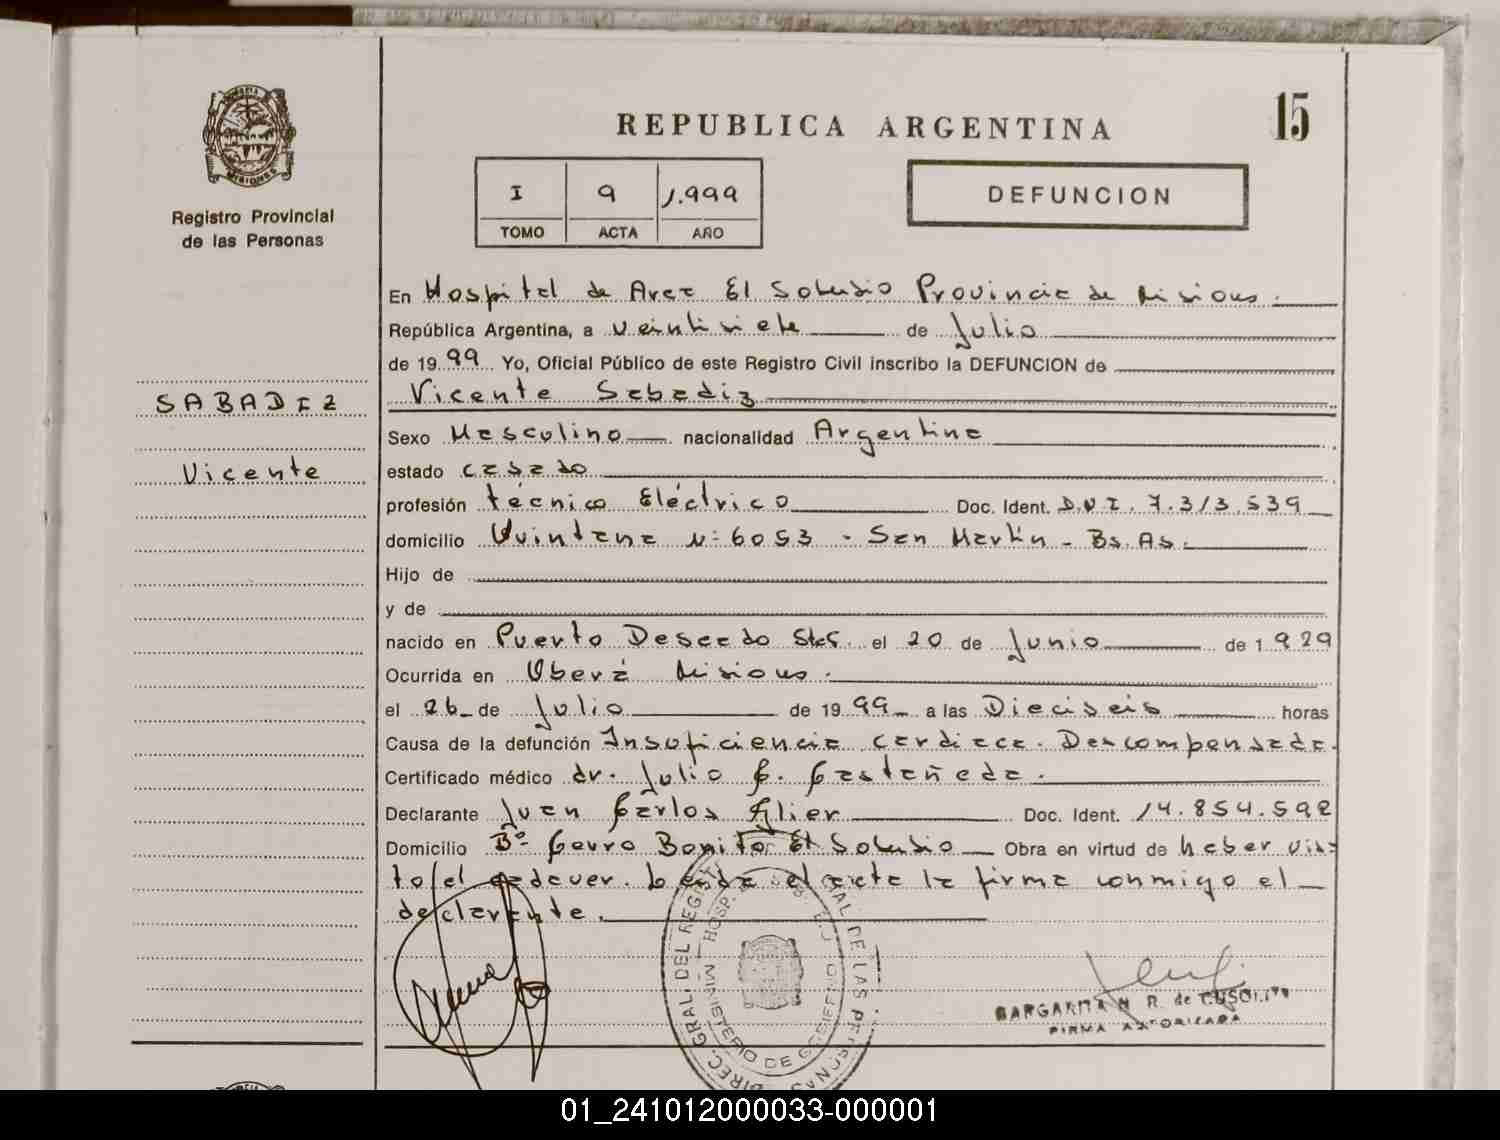 15
REPUBLICA ARGENTINA
MISIONES
Registro Provincial
de las Personas
I 9 1.999
TOMO ACTA AÑO
DEFUNCION
SABADIZ
Vicente
En Hospital de Area El Soberbio Provincia de Misiones.
República Argentina, a veintisiete de Julio
de 1999 Yo, Oficial Público de este Registro Civil inscribo la DEFUNCION de
Vicente Sabadiz
Sexo Masculino nacionalidad Argentina
estado casado
profesión técnico Eléctrico Doc. Ident. D.N.I. 7.313.539
domicilio Quintana Nº 6053 - San Martín - Bs.As.
Hijo de
y de
nacido en Puerto Deseado el 20 de Junio de 1929
Ocurrida en Oberá Misiones.
el 26 de Julio de 1999 a las Dieciseis horas
Causa de la defunción Insuficiencia cardiaca. Descompensada.
Certificado médico dr. Julio C. Castañeda.
Declarante Juan Carlos Alier Doc. Ident. 14.854.592
Domicilio Bº Cerro Bonito El Soberbio Obra en virtud de haber vis
to el cadaver. Leida el acta la firma conmigo el
declarante.
DIREC. GRAL. DEL REGIST. DE LAS PERSONAS
MINISTERIO DE GOBIERNO
MARGARITA R. de
FIRMA AUTORIZADA
01_241012000033-000001